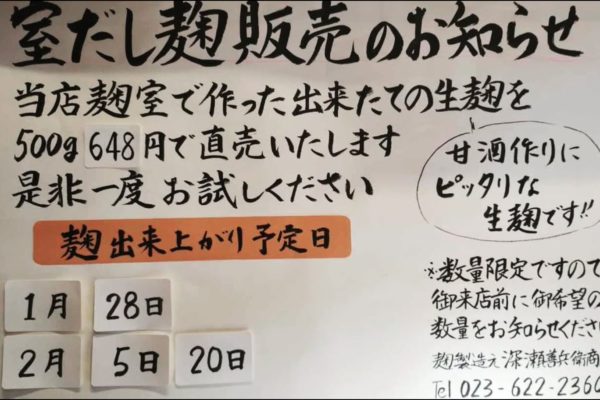 室だし麹販売のお知らせ
当店麹室で作った出来たての生麹を
500g 648円で直売いたします
是非一度お試しください
甘酒作りに
ピッタリな
生麹です!!
麹出来上がり予定日
1月 28日
2月 5日 20日
※数量限定ですので
御来店前に御希望の
数量をお知らせくださ
麹製造元 深瀬善兵衛商
Tel 023-622-2360